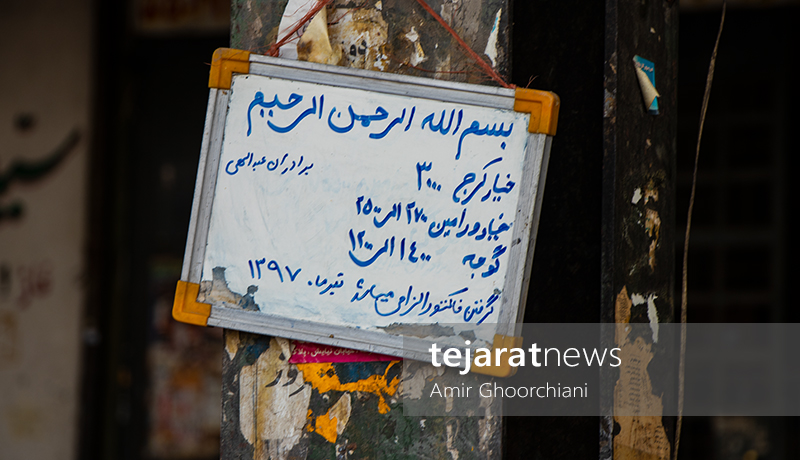 بسم الله الرحمن الرحیم
برادران عبدالهی
خیار کرج ۳۰۰۰
خیار ورامین ۲۷۰۰ الی ۲۵۰۰
گوجه ۱۴۰۰ الی ۱۲۰۰
گرفتن فاکتور الزامی میباشد تیرماه ۱۳۹۷
tejaratnews
Amir Ghoorchiani